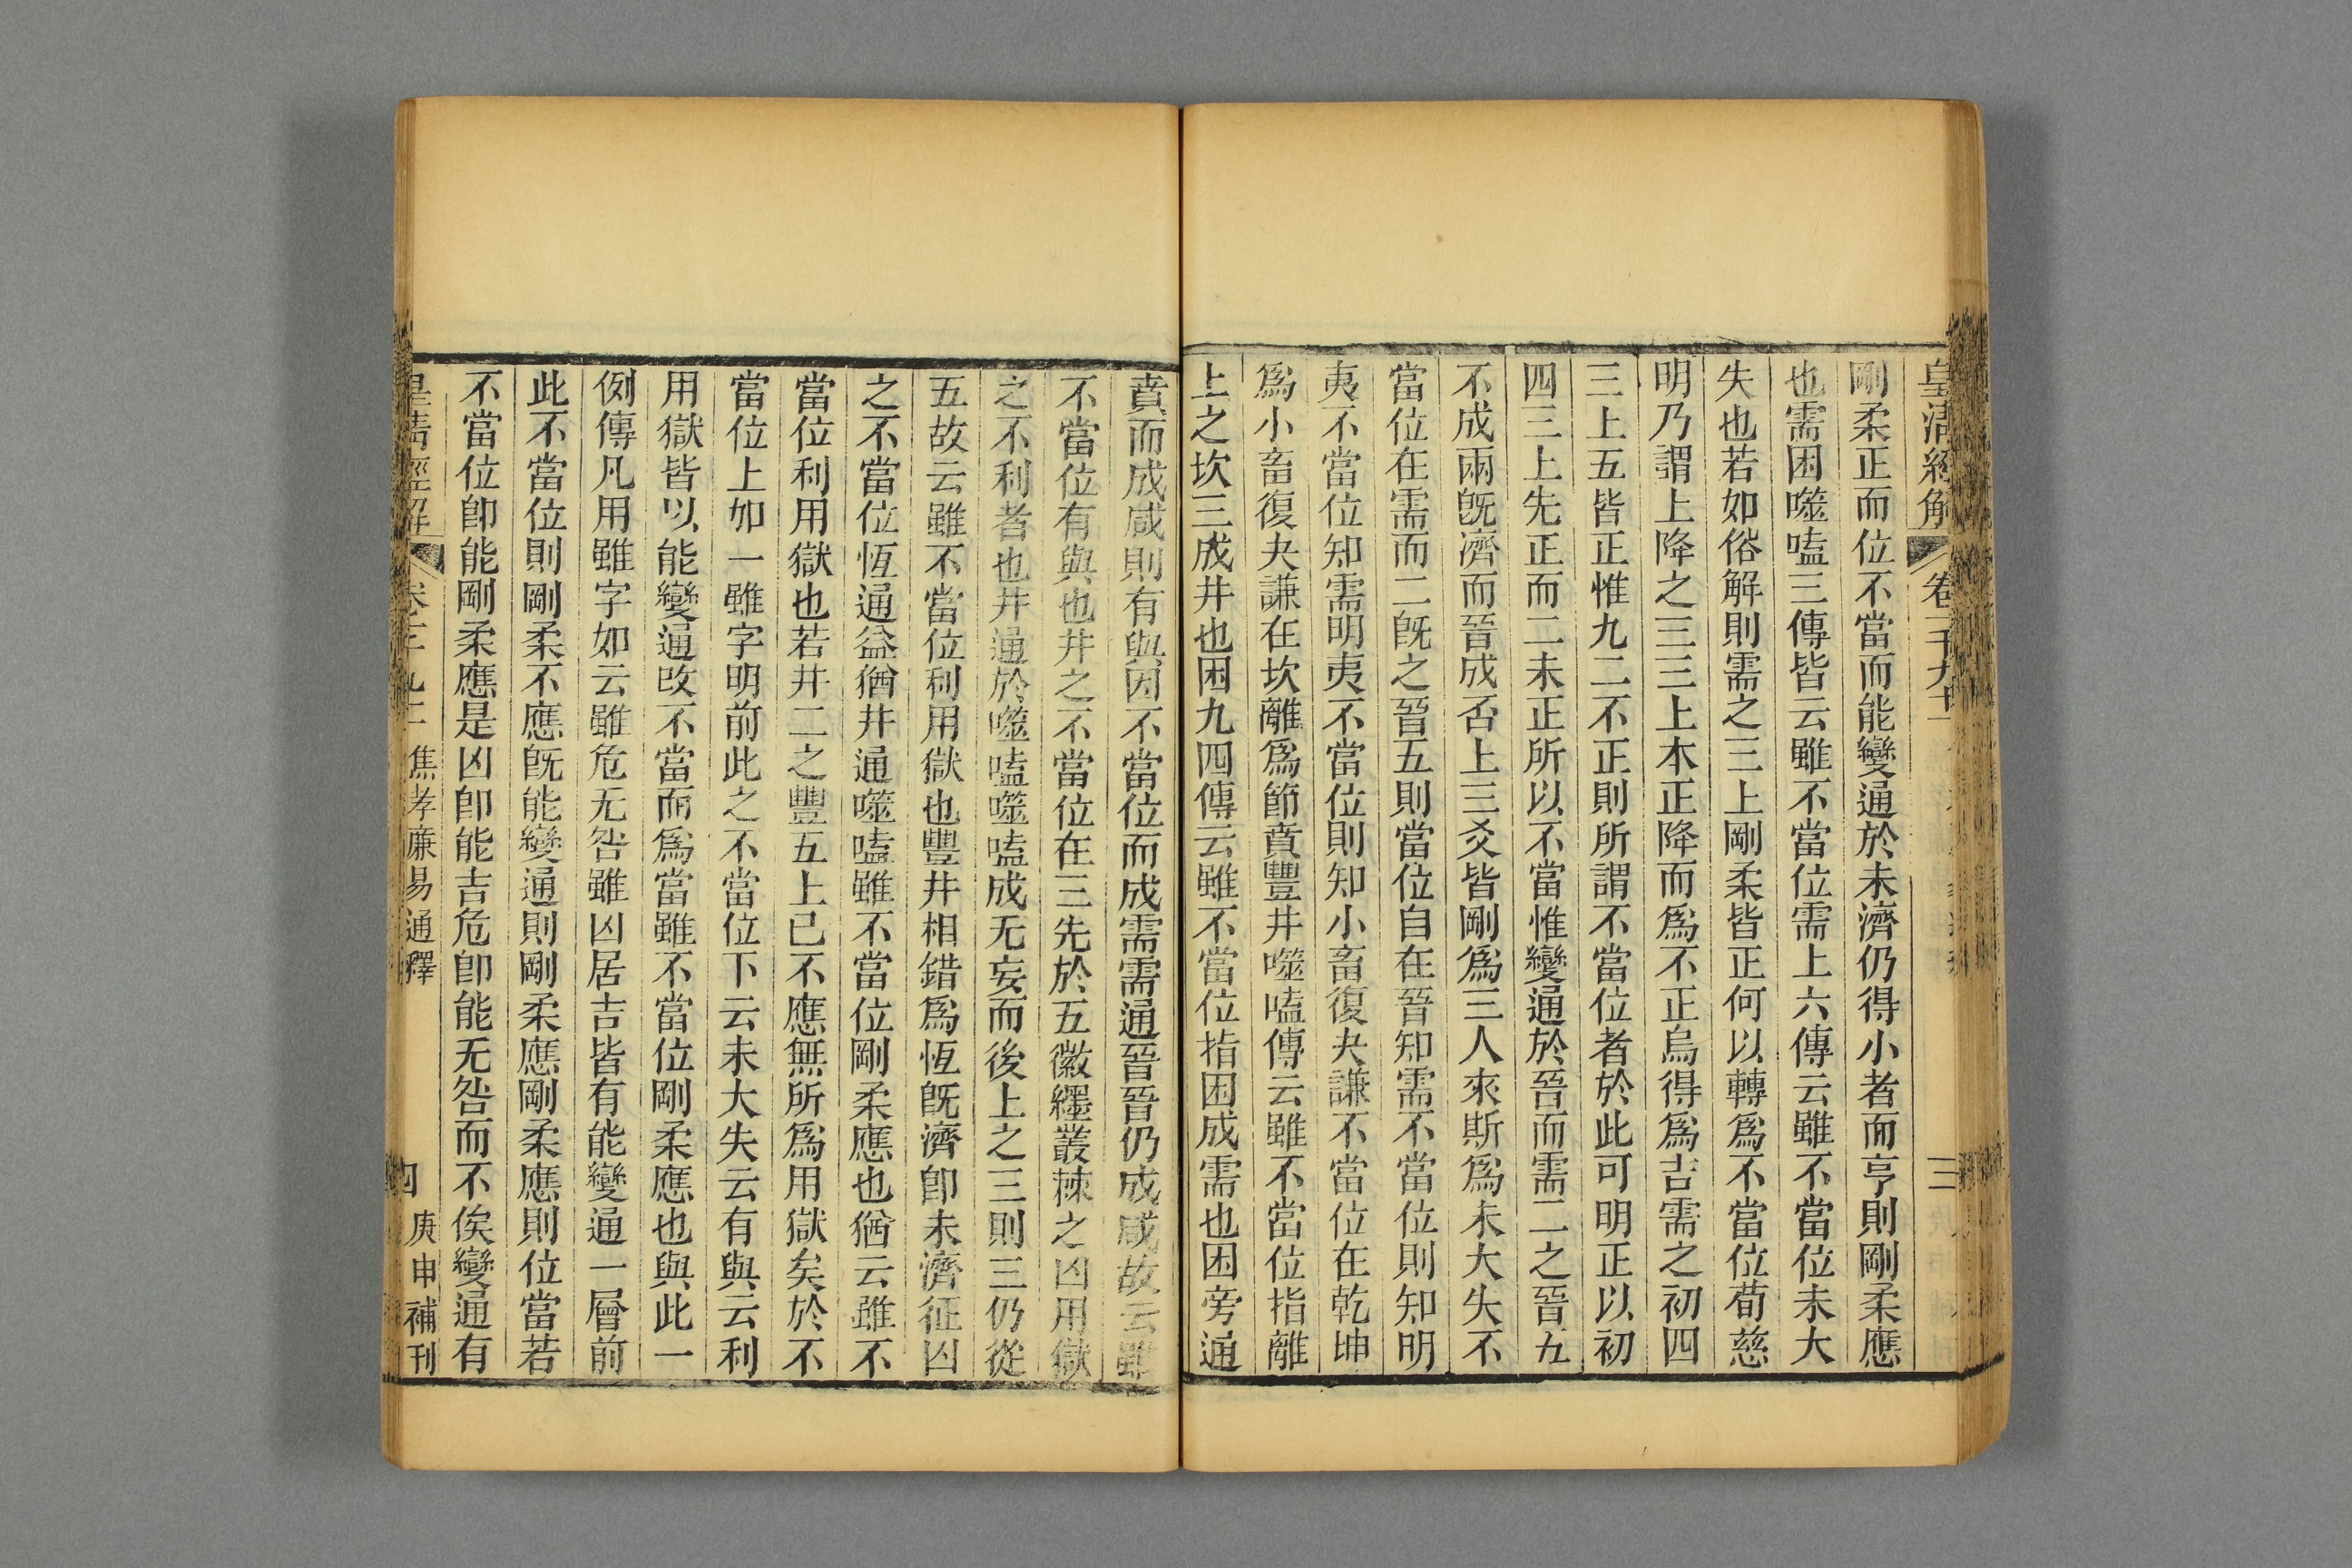 皇清經解 卷一千九十一 三
剛柔正而位不當而能變通於未濟仍得小者而亨則剛柔應
也需困噬嗑三傳皆云雖不當位需上六傳云雖不當位未大
失也若如俗解則需之三上剛柔皆正何以轉爲不當位荀慈
明乃謂上降之三三上本正降而爲不正烏得爲吉需之初四
三上五皆正惟九二不正則所謂不當位者於此可明正以初
四三上先正而二未正所以不當惟變通於晉而需二之晉五
不成兩旣濟而晉成否上三爻皆剛爲三人來斯爲未大失不
當位在需而二旣之晉五則當位自在晉知需不當位則知明
夷不當位知需明夷不當位則知小畜復夬謙不當位在乾坤
爲小畜復夬謙在坎離爲節賁豐井噬嗑傳云雖不當位指離
上之坎三成井也困九四傳云雖不當位指困成需也困旁通
賁而成咸則有與因不當位而成需需通晉晉仍成咸故云雖
不當位有與也井之不當位在三先於五徽纆叢棘之凶用獄
之不利者也井通於噬嗑噬嗑成无妄而後上之三則三仍從
五故云雖不當位利用獄也豐井相錯爲恆旣濟卽未濟征凶
之不當位恆通益猶井通噬嗑雖不當位剛柔應也猶云雖不
當位利用獄也若井二之豐五上已不應無所爲用獄矣於不
當位上加一雖字明前此之不當位下云未大失云有與云利
用獄皆以能變通改不當而爲當雖不當位剛柔應也與此一
例傳凡用雖字如云雖危无咎雖凶居吉皆有能變通一層前
此不當位則剛柔不應旣能變通則剛柔應剛柔應則位當若
不當位卽能剛柔應是凶卽能吉危卽能无咎而不俟變通有
皇清經解 焦孝廉易通釋 四 庚申補刊